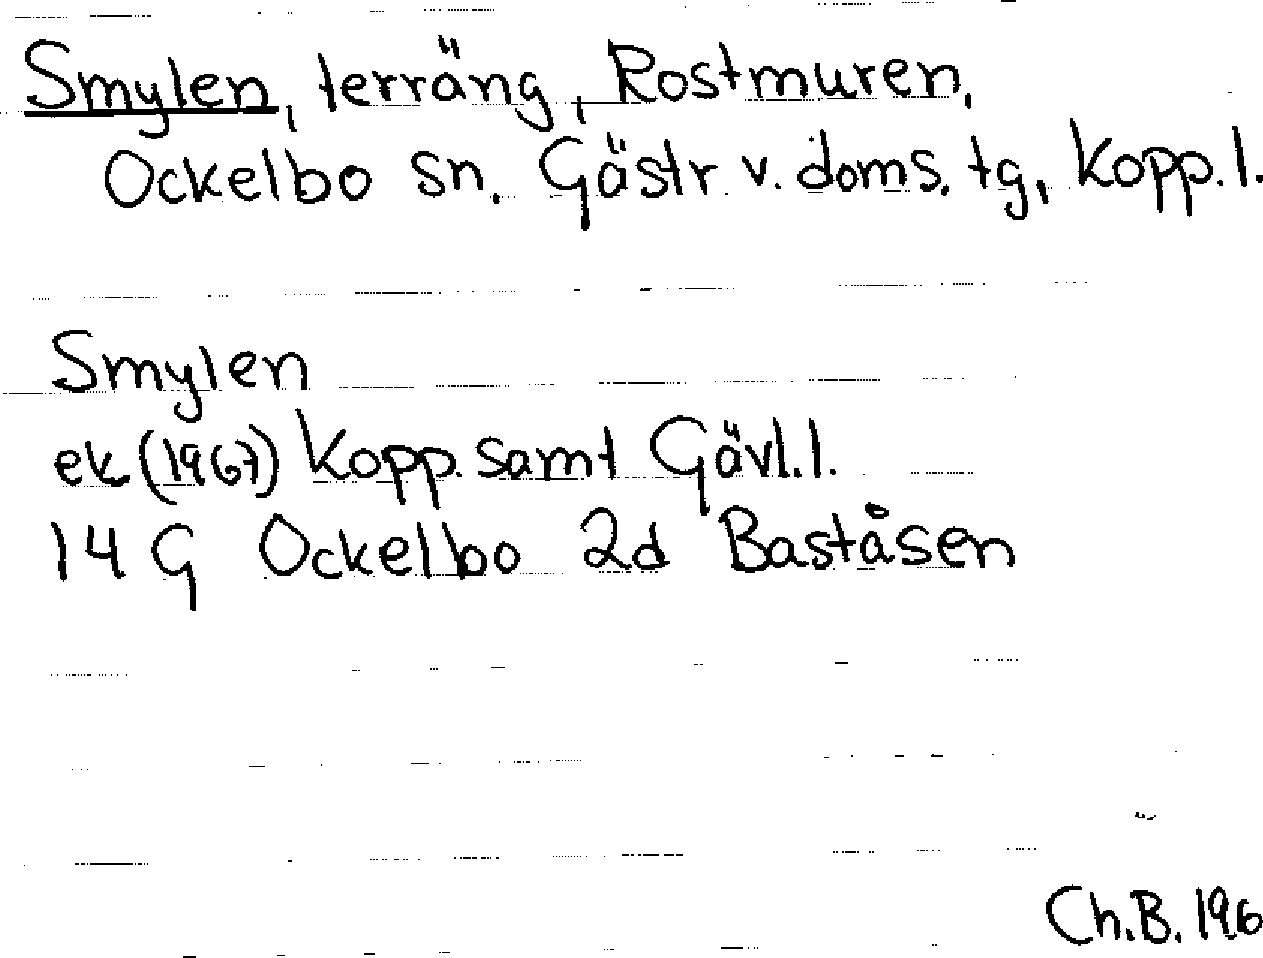 Smylen, terräng, Rostmuren,
Ockelbo sn. Gästr. v. doms. tg, Kopp. l.
Smylen
ek (1967) Kopp. samt Gävl. l.
14 G Ockelbo 2d Baståsen
Ch.B. 196